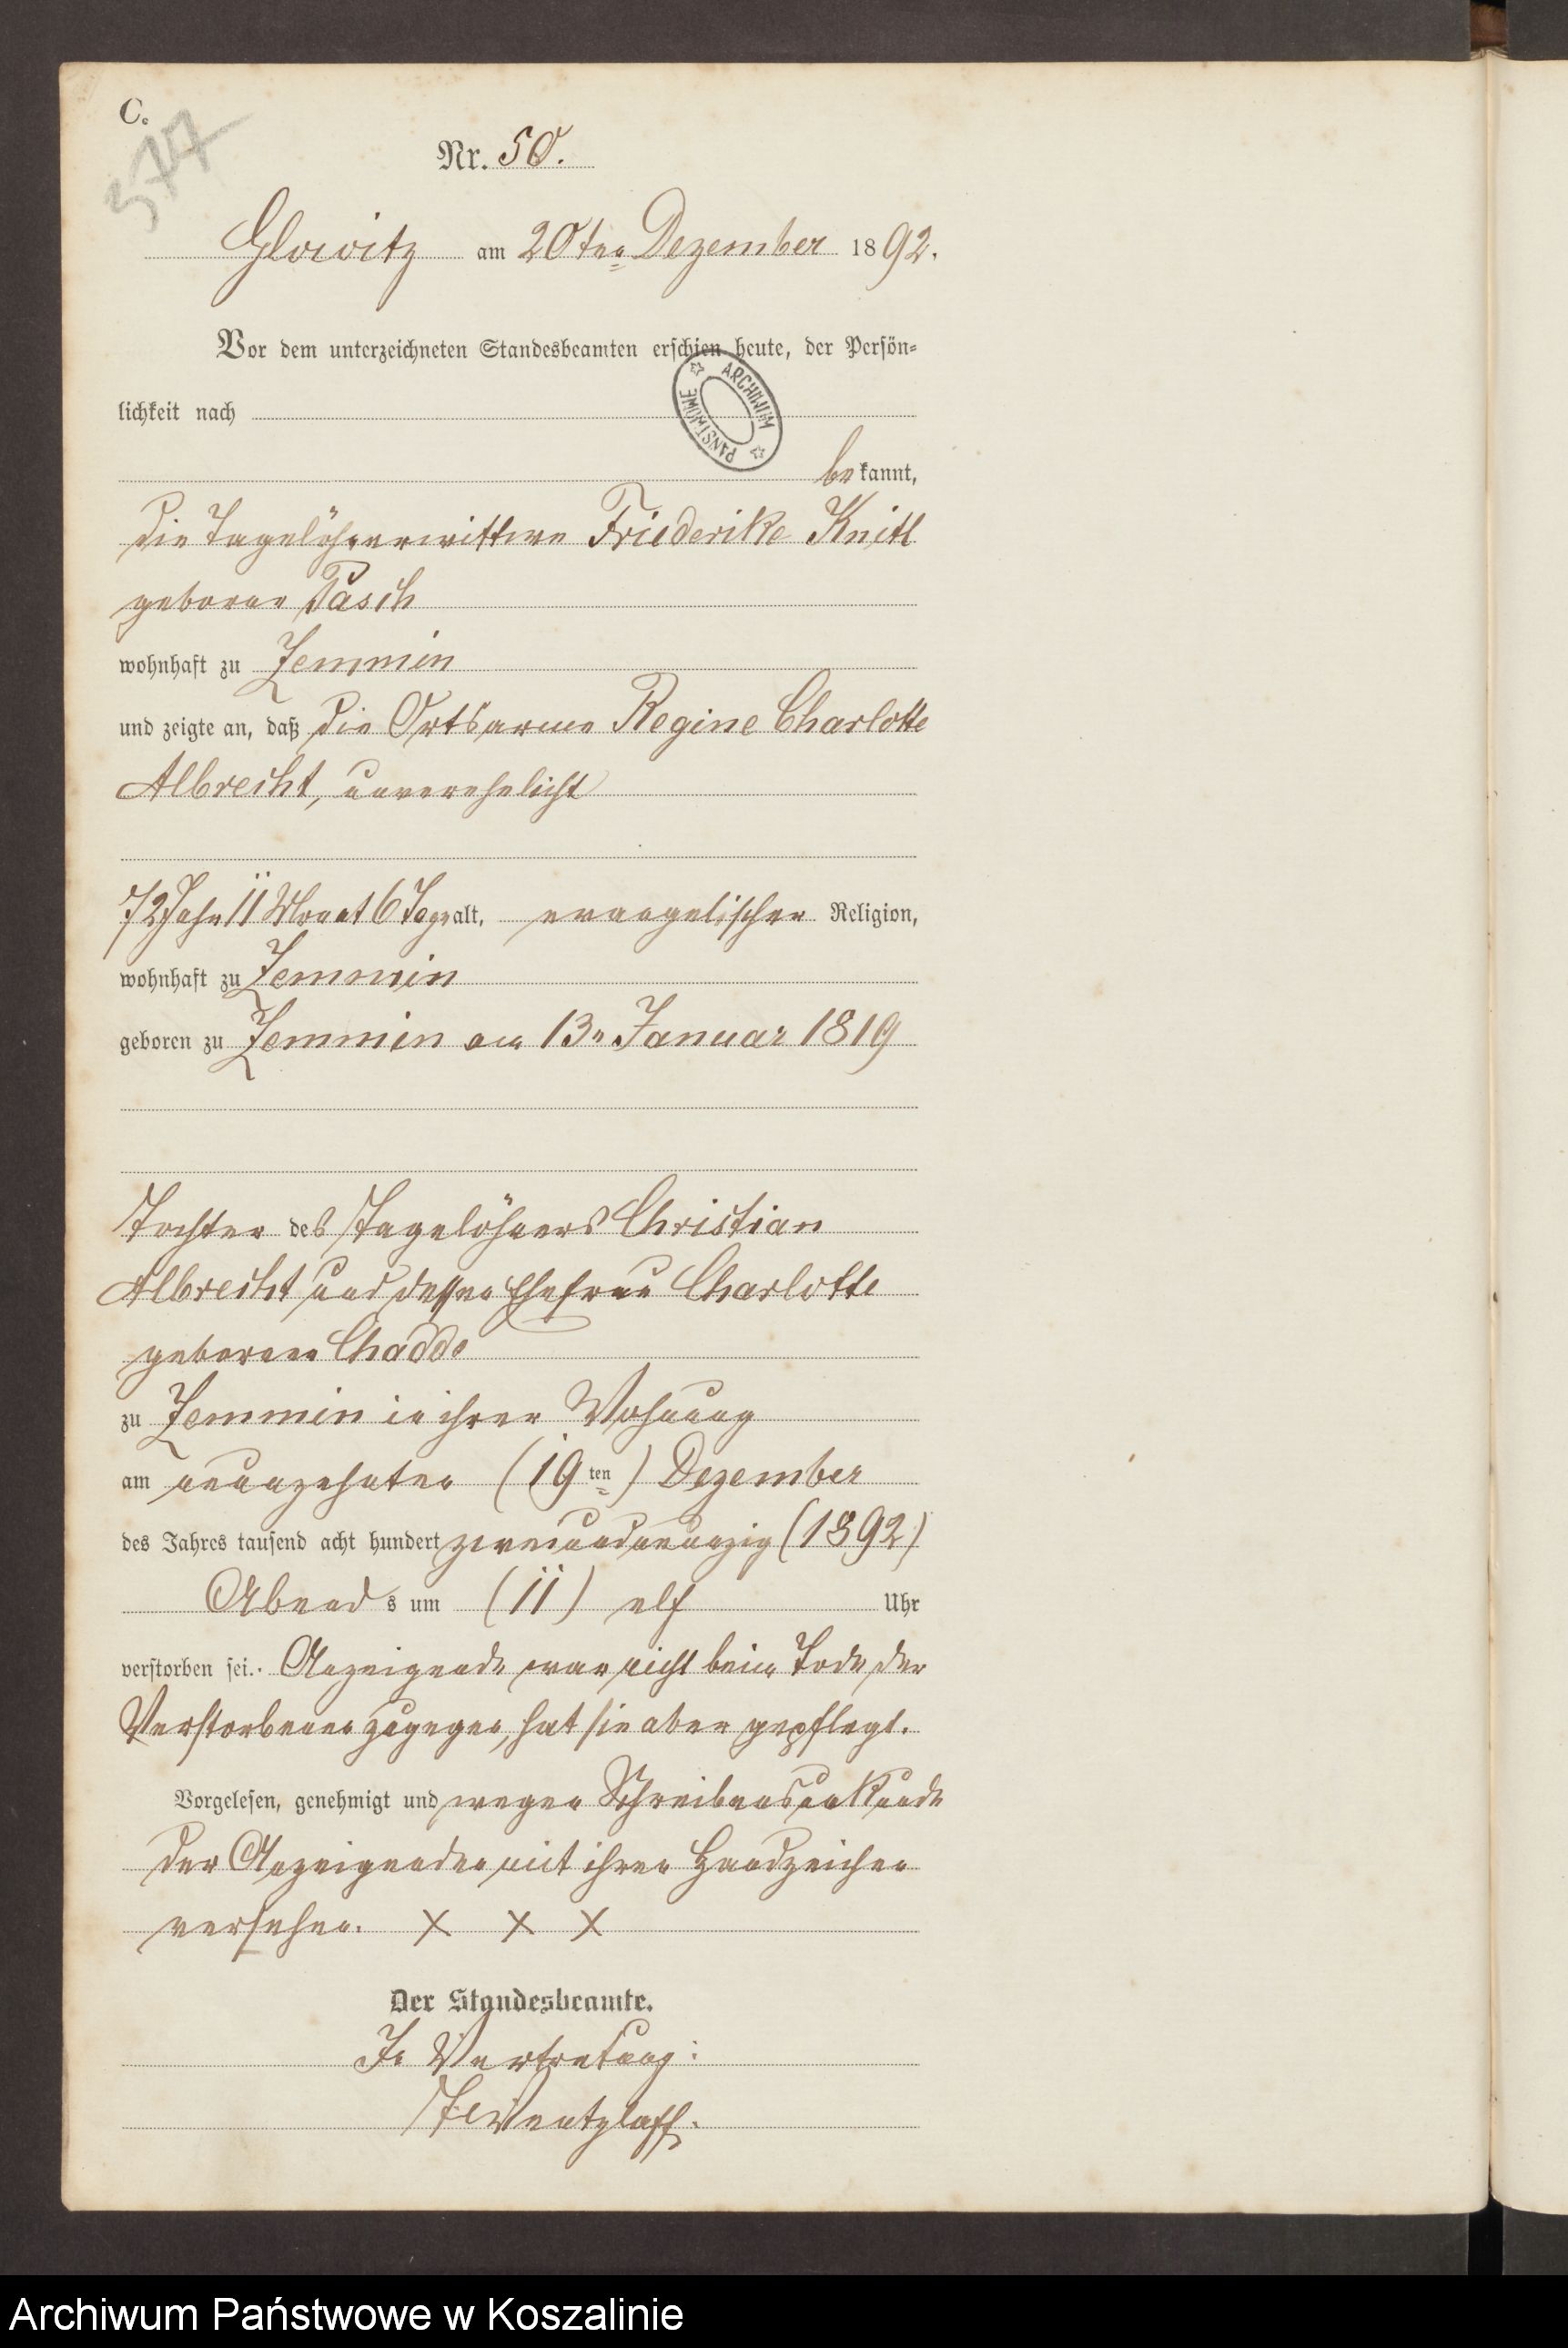 C.
377
Nr. 50.
Glowitz am 20ten Dezember 1892.
Vor dem unterzeichneten Standesbeamten erschien heute, der Persön-
lichkeit nach
ARCHIWUM PAŃSTWOWE
bekannt,
die Tagelöhnerwittwe Friederike Knitl
geborne Pasch
wohnhaft zu Zemmin
und zeigte an, daß die Ortsarme Regine Charlotte
Albrecht, unverehelicht
72 Jahr 11 Monat 6 Tage alt, evangelischer Religion,
wohnhaft zu Zemmin
geboren zu Zemmin am 13n Januar 1819
Tochter des Tagelöhners Christian
Albrecht und dessen Ehefrau Charlotte
geborenen Chadde
zu Zemmin in ihrer Wohnung
am neunzehnten (19ten) Dezember
des Jahres tausend acht hundert zweiundneunzig (1892)
Abends um (11) elf Uhr
verstorben sei. Anzeigende war nicht beim Tode der
Verstorbenen zugegen, hat sie aber gepflegt.
Vorgelesen, genehmigt und wegen Schreibensunkunde
der Anzeigenden mit ihren Handzeichen
versehen. X X X
Der Standesbeamte.
In Vertretung:
Wentzlaff.
Archiwum Państwowe w Koszalinie